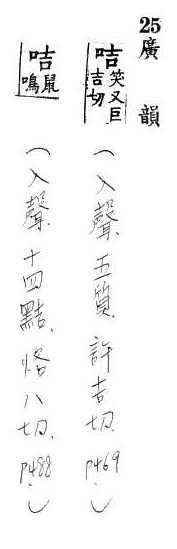 25 廣韻
咭 笑又巨吉切 (入聲. 五質. 許吉切. P469.)
咭 鼠鳴 (入聲. 十四黠. 恪八切. P488.)